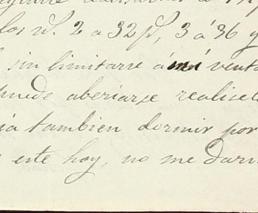 los nº. 2 a 32 pf, 3 á 36 y
sin limitarse á mi venta
puede aberiarse realisel
ia tambien dormir por
este hoy, no me darn